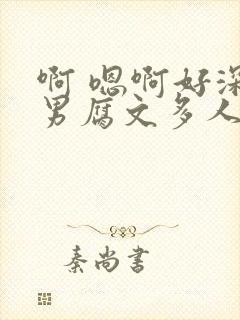 啊 嗯啊好深
男腐文多人
秦尚书